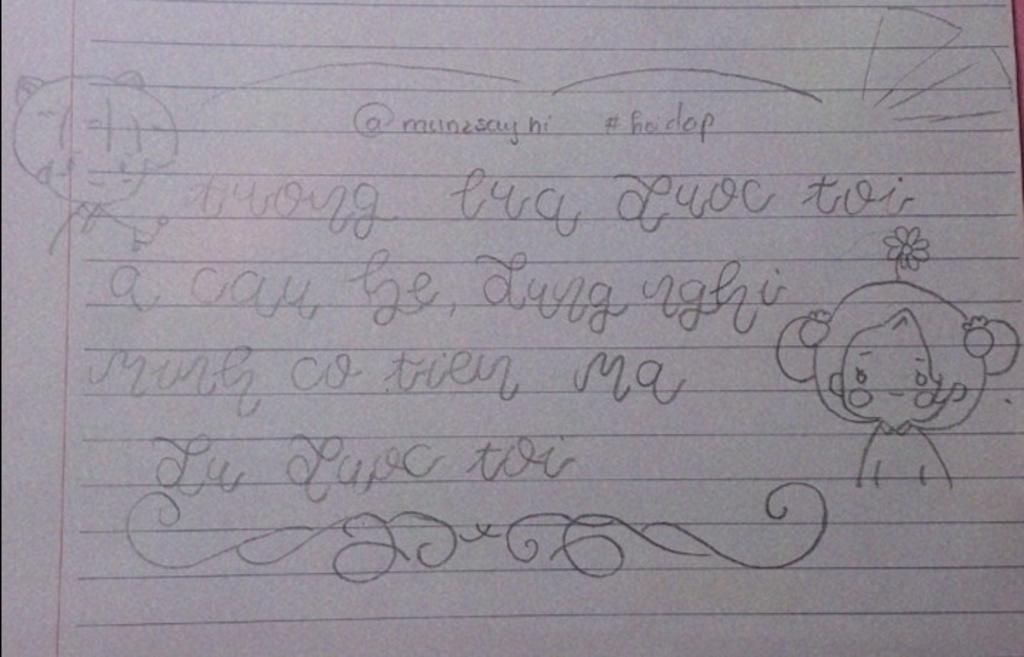 @munzsayhi #hoidap
tưởng lừa được tôi
à cậu bé, đừng nghĩ
mình có tiền mà
dụ được tôi